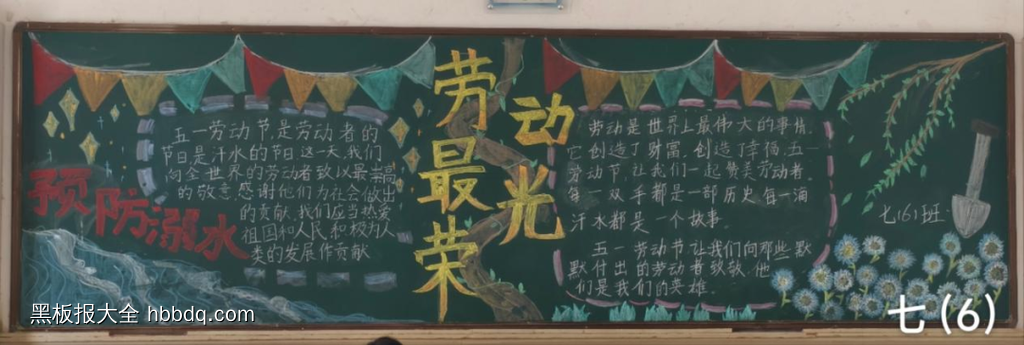 劳动最光荣
预防溺水
五一劳动节,是劳动者的
节日是汗水的节日这一天,我们
向全世界的劳动者致以最崇高
的敬意,感谢他们为社会做出
的贡献,我们应当热爱
祖国和人民和
类的发展作贡献
劳动是世界上最伟大的事情,
它创造了财富,创造了幸福,五一
劳动节,让我们一起赞美劳动者。
每一双手都是一部历史,每一滴
汗水都是一个故事。
五一劳动节让我们向那些默
默付出的劳动者致敬,他
们是我们的英雄。
七(6)班
黑板报大全 hbbdq.com
七(6)